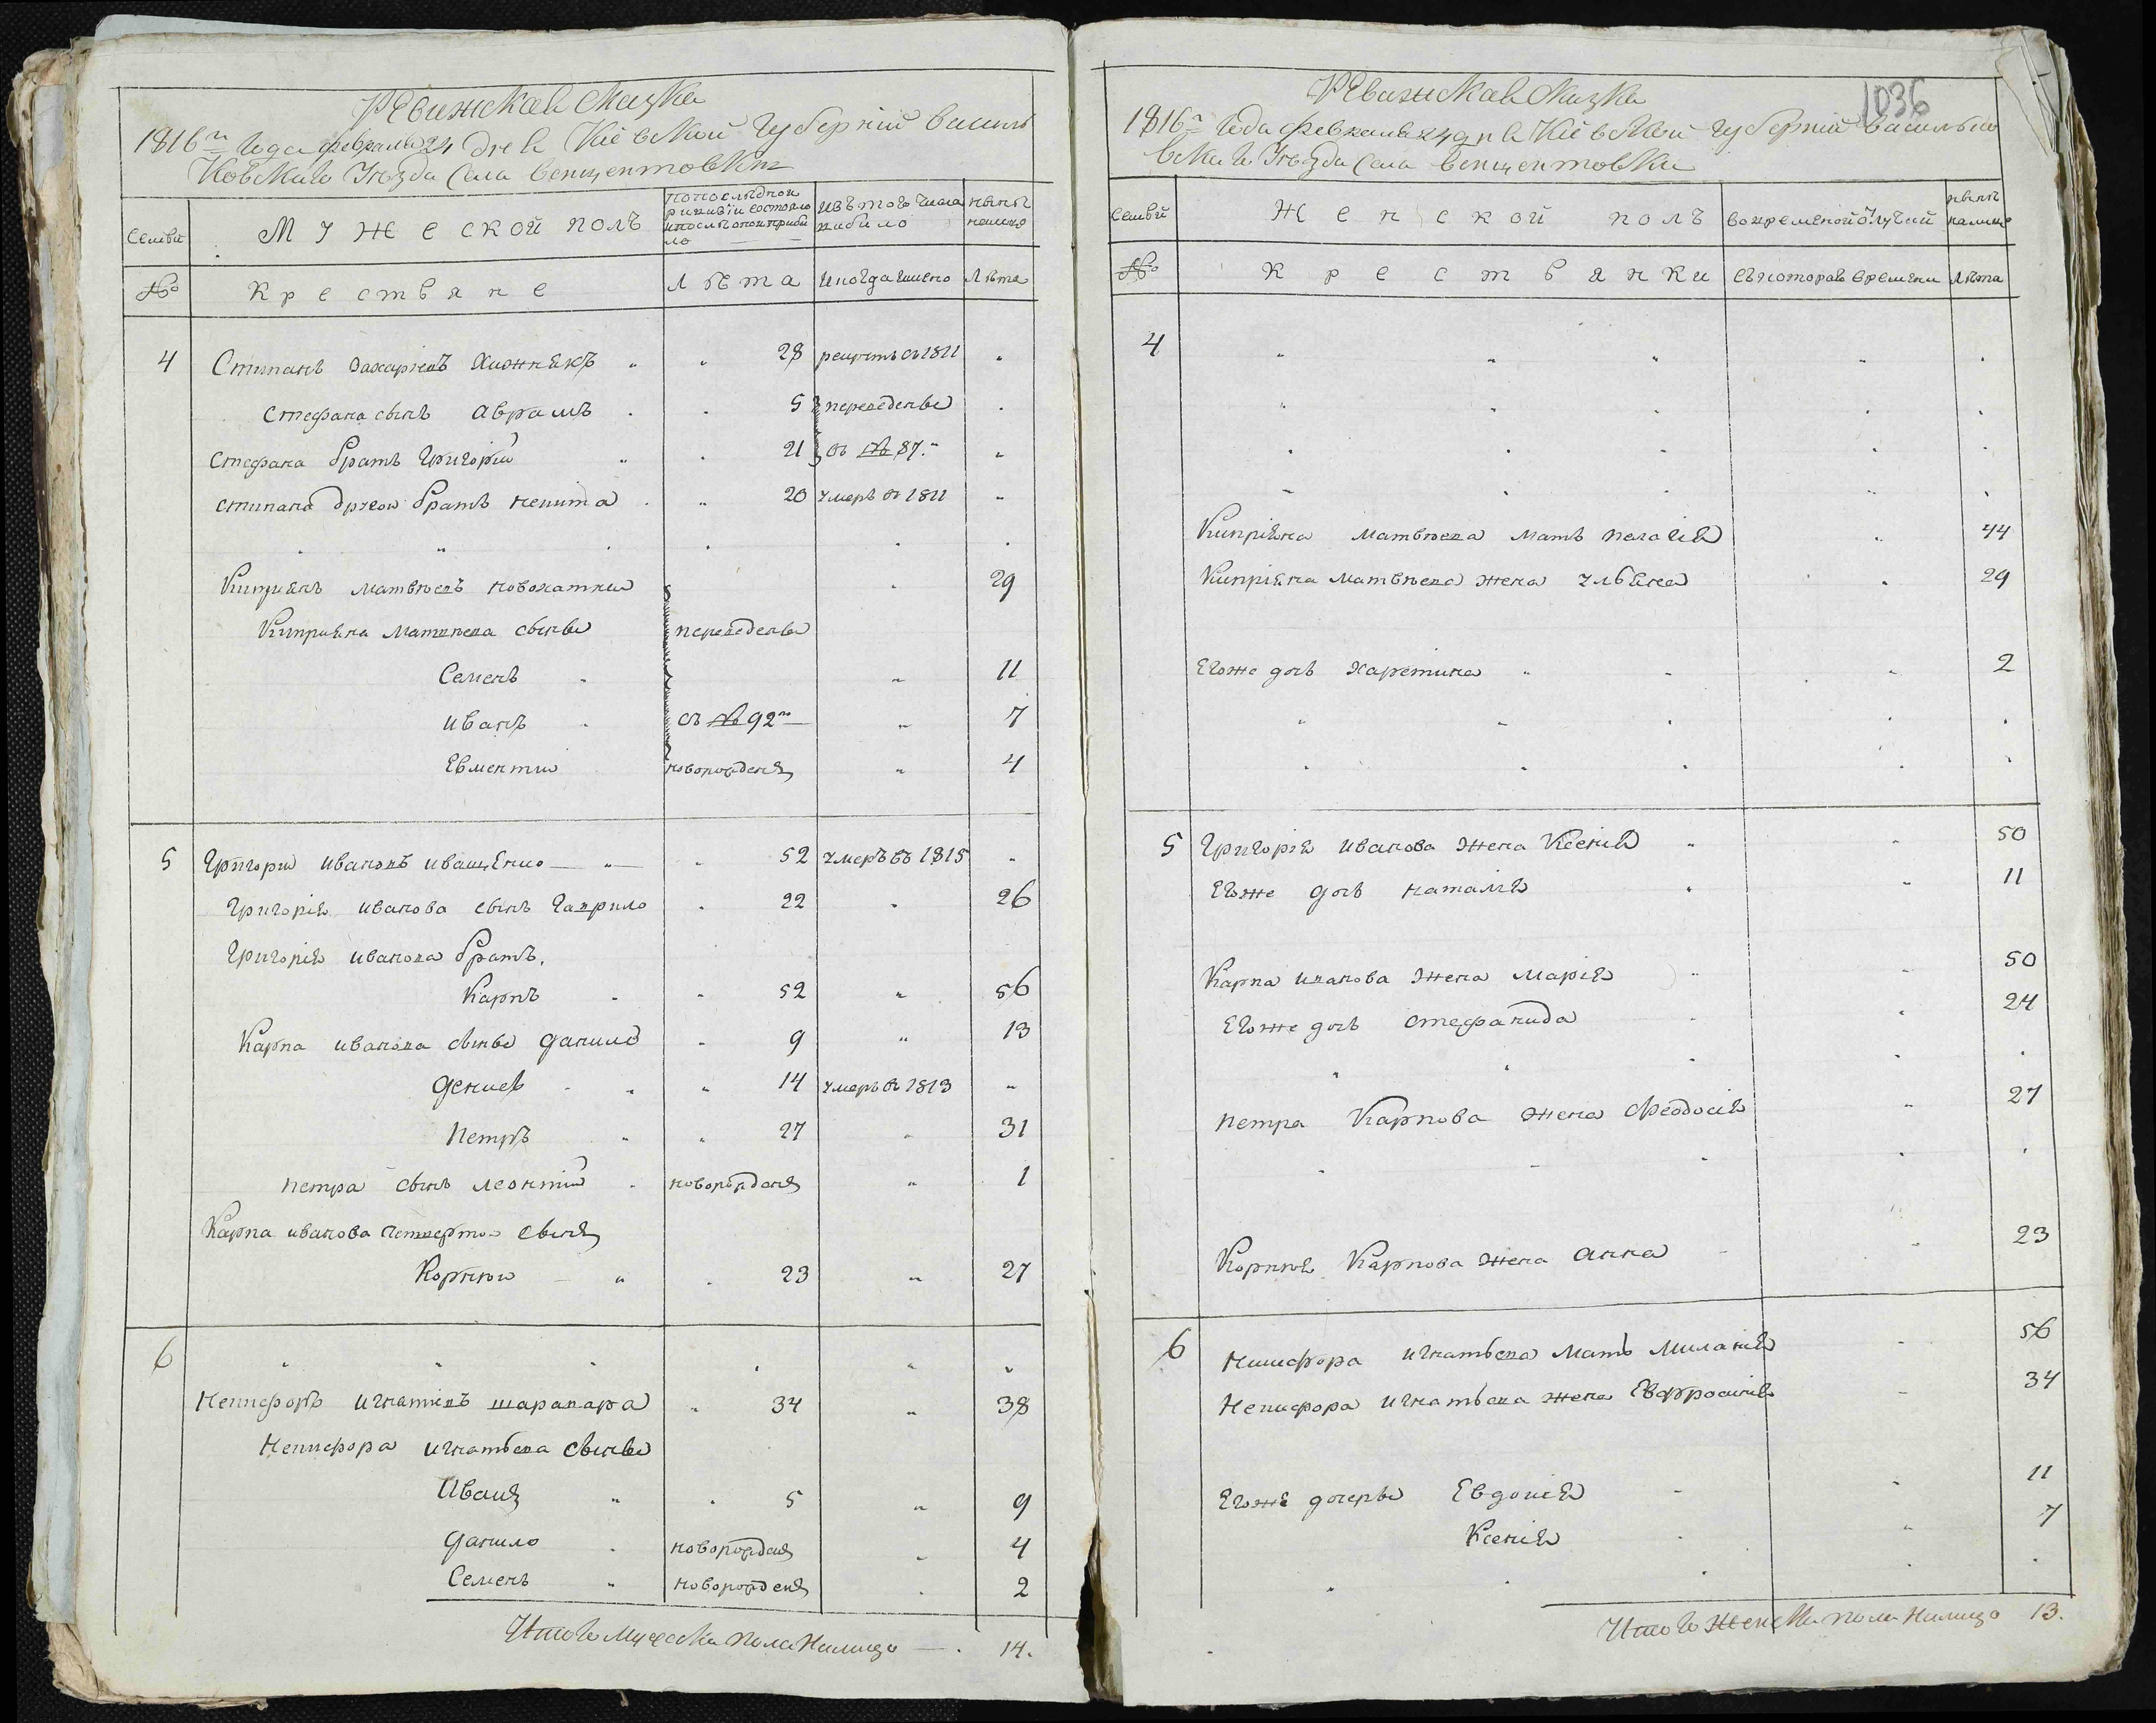 Ревижская Скаска
1816го года февраля 24 дня Кіевской губерніи василь
ковскаго Уезда Села венцентовки
Семьи
МУЖЕСКОЙ ПОЛЪ
Изъ того числа
выбыло
ныне
№
Крествяне
Лѣта
Когда имено
Лѣта
4 Степанъ Захаріевъ Хижнякъ 28 рекрутъ въ 1811
Стефана сынъ Аврамъ 5 переведены
Стефана братъ Григорій 21 въ № 87
Степана другои братъ Никита 20 умеръ въ 1811
Киприянъ Матвѣевъ Новохатнии 29
Киприяна Матвѣева сыны переведены
Семенъ 11
Иванъ съ № 92го 7
Евментии новорожденъ 4
5 Григори Ивановъ Иващенко 52 умеръ въ 1815
Григорія Иванова сынъ Гаврило 22 26
Григорія Иванова братъ
Карпъ 52 56
Карпа Иванова сыны Данило 9 13
Денисъ 14 умеръ въ 1813
Петръ 27 31
Петра сынъ Леонтій новорожденъ 1
Карпа Иванова четверто сынъ
Корнии 23 27
6
Никифоръ Игнатіевъ Шаравара 34 38
Никифора Игнатьева сыны
Иванъ 5 9
Данило новорожденъ 4
Семенъ новорожденъ 2
Итого Мужеска пола налицо 14.
1036
Ревижская Скаска
1816го года февраля 24 дня Кіевской губерніи василько
вскаго Уезда Села венцентовки
Семьи
ЖЕНСКОЙ ПОЛЪ
вовременой отлучки
ныне
налице
№
Крествянки
съ котораго времени
Лѣта
4
Кипріяна Матвѣева мать Пелагія 44
Кипріяна Матвѣева жена Ульяна 29
Егоже дочь Харетина 2
5 Григорія Иванова жена Ксенія 50
Егоже дочь Наталія 11
Карпа Иванова жена Марія 50
Егоже дочь Стефанида 24
Петра Карпова жена Феодосія 27
Корнія Карпова жена Анна 23
6 Никифора Игнатьева мать Миланія 56
Никифора Игнатьева жена Евфросинія 34
Егоже дочеры Евдокія 11
Ксенія 7
Итого Женска пола налицо 13.